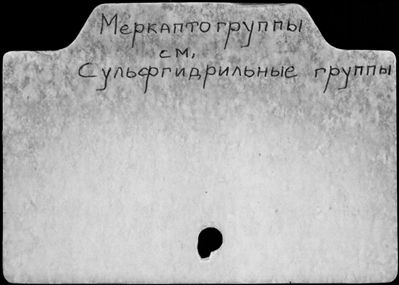 Меркаптогруппы
см.
Сульфгидрильные группы